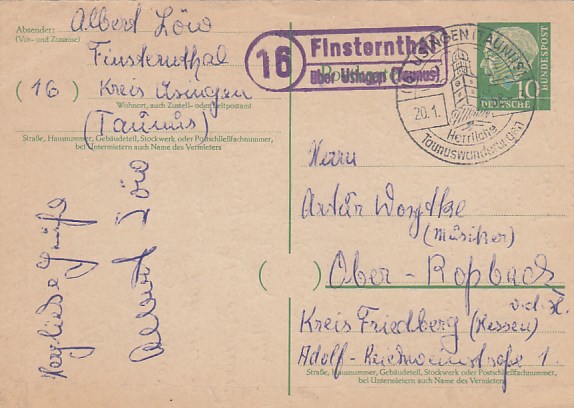 Absender:
(Vor- und Zuname)
Albert Löw
Finsternthal
(16) Kreis Usingen
Wohnort, auch Zustell- oder Leitpostamt
(Taunus)
Straße, Hausnummer, Gebäudeteil, Stockwerk oder Postschließfachnummer,
bei Untermietern auch Name des Vermieters
Herzliche Grüße
Albert Löw
16 Finsternthal
über Usingen (Taunus)
USINGEN (TAUNUS)
20.1.
Herrliche
Taunuswanderungen
DEUTSCHE BUNDESPOST
10
Herrn
Artur Woydtke
(Musiker)
Ober-Roßbach
v.d.H.
Kreis Friedberg (Hessen)
Adolf-Reichweinstraße 1.
Straße, Hausnummer, Gebäudeteil, Stockwerk oder Postschließfachnummer,
bei Untermietern auch Name des Vermieters